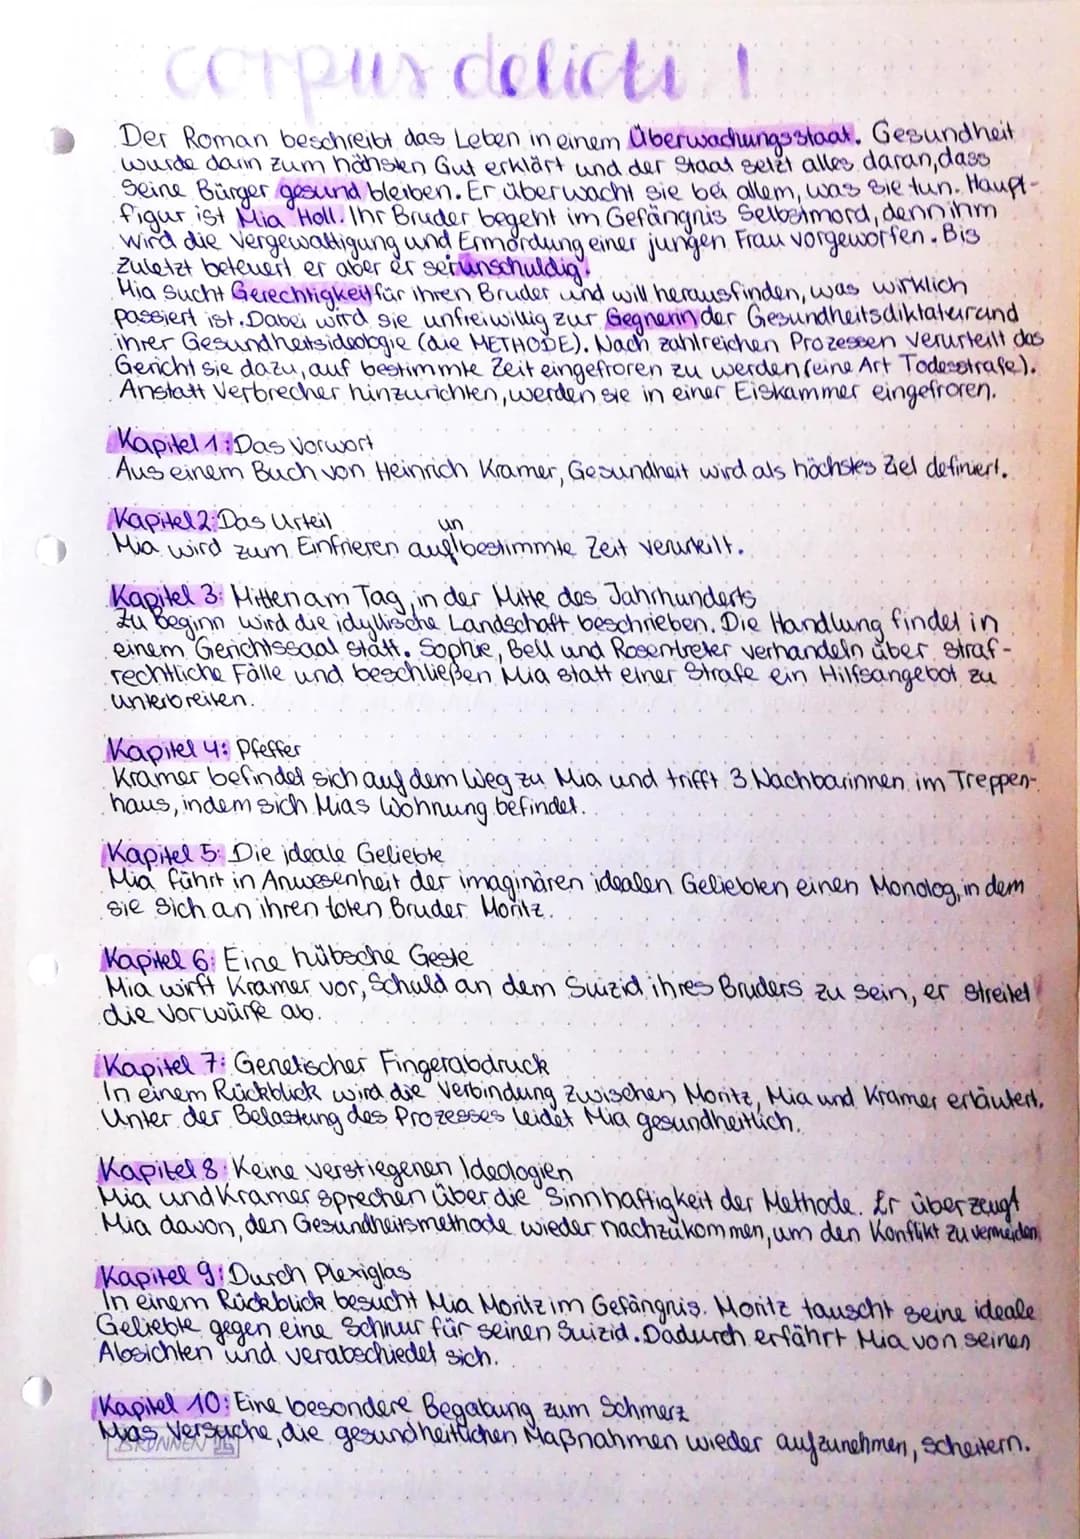 corpus delicti 1
Der Roman beschreibt das Leben in einem Überwachungsstaat. Gesundheit
wurde darin zum höhsten Gut erklärt und der Staat setzt alles daran, dass
seine Bürger gesund bleiben. Er überwacht sie bei allem, was sie tun. Haupt-
figur ist Mia Holl. Ihr Bruder begeht im Gefängnis Selbstmord, denn ihm
wird die Vergewaltigung und Ermordung einer jungen Frau vorgeworfen. Bis
zuletzt beteuert er aber er sei unschuldig.
Mia sucht Gerechtigkeit für ihren Bruder und will herausfinden, was wirklich
passiert ist. Dabei wird sie unfreiwillig zur Gegnerin der Gesundheitsdiktatur und
ihrer Gesundheitsideologie (die METHODE). Nach zahlreichen Prozessen verurteilt das
Gericht sie dazu, auf bestimmte Zeit eingefroren zu werden (eine Art Todesstrafe).
Anstatt Verbrecher hinzurichten, werden sie in einer Eiskammer eingefroren.
Kapitel 1: Das Vorwort
Aus einem Buch von Heinrich Kramer, Gesundheit wird als höchstes Ziel definiert.
Kapitel 2: Das Urteil
Mia wird zum Einfrieren auf unbestimmte Zeit verurteilt.
Kapitel 3: Mitten am Tag, in der Mitte des Jahrhunderts
Zu Beginn wird die idyllische Landschaft beschrieben. Die Handlung findet in
einem Gerichtssaal statt. Sophie, Bell und Rosentreter verhandeln über straf-
rechtliche Fälle und beschließen Mia statt einer Strafe ein Hilfsangebot zu
unterbreiten.
Kapitel 4: Pfeffer
Kramer befindet sich auf dem Weg zu Mia und trifft 3 Nachbarinnen im Treppen-
haus, indem sich Mias Wohnung befindet.
Kapitel 5: Die ideale Geliebte
Mia führt in Anwesenheit der imaginären idealen Geliebten einen Monolog, in dem
sie sich an ihren toten Bruder Moritz.
Kapitel 6: Eine hübsche Geste
Mia wirft Kramer vor, Schuld an dem Suizid ihres Bruders zu sein, er streitet
die Vorwürfe ab.
Kapitel 7: Genetischer Fingerabdruck
In einem Rückblick wird die Verbindung zwischen Moritz, Mia und Kramer erläutert.
Unter der Belastung des Prozesses leidet Mia gesundheitlich.
Kapitel 8: Keine verstiegenen Ideologien
Mia und Kramer sprechen über die Sinnhaftigkeit der Methode. Er überzeugt
Mia davon, den Gesundheitsmethode wieder nachzukommen, um den Konflikt zu vermeiden
Kapitel 9: Durch Plexiglas
In einem Rückblick besucht Mia Moritz im Gefängnis. Moritz tauscht seine ideale
Geliebte gegen eine Schnur für seinen Suizid. Dadurch erfährt Mia von seinen
Absichten und verabschiedet sich.
Kapitel 10: Eine besondere Begabung zum Schmerz
Mias Versuche, die gesundheitlichen Maßnahmen wieder aufzunehmen, scheitern.
BRUNNEN